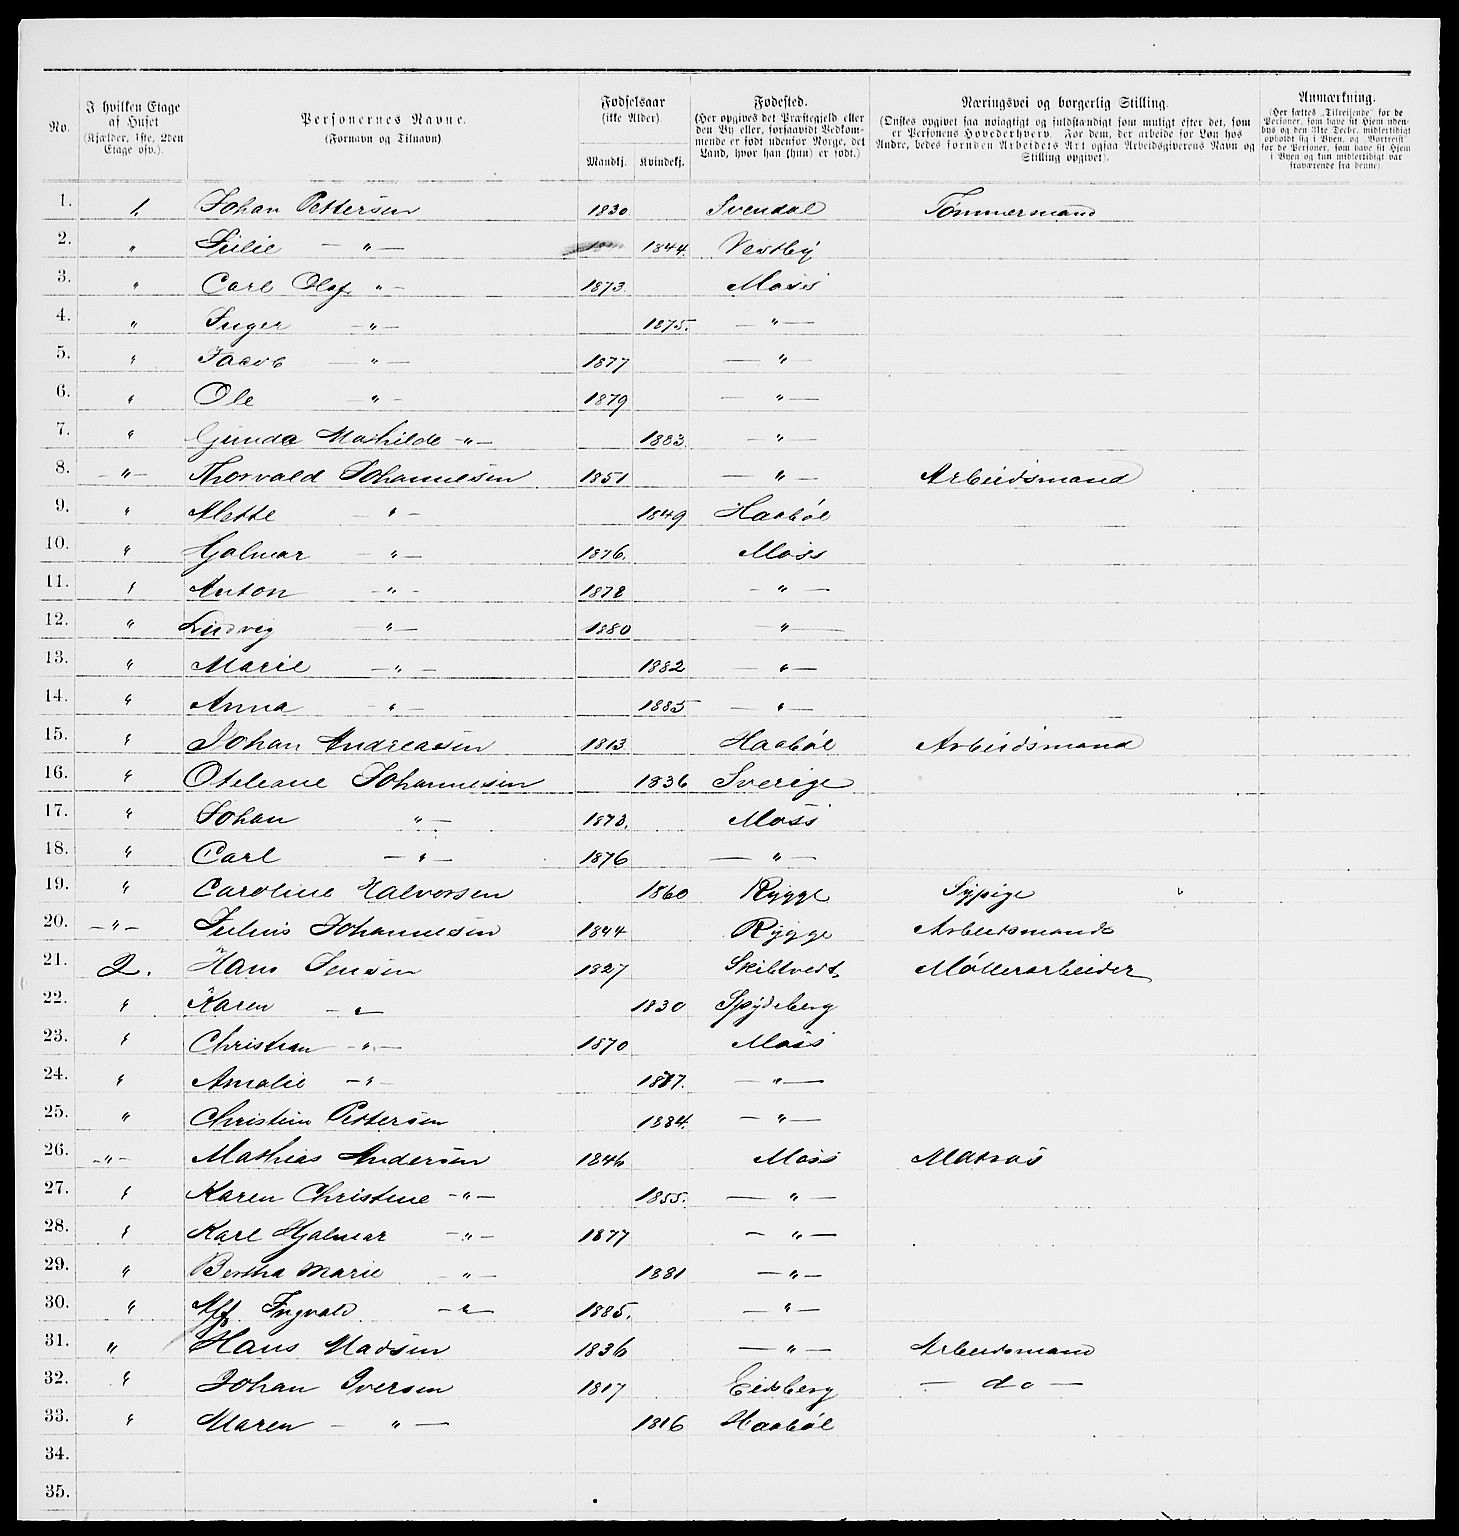 No. | I hvilken Etage af Huset (Kjælder, 1ste, 2den Etage osv.). | Personernes Navne. (Fornavn og Tilnavn). | Fødselsaar (ikke Alder). Mandkj. Kvindekj. | Fødested. (Her opgives det Præstegjeld eller den By eller, forsaavidt Vedkommende er født udenfor Norge, det Land, hvor han (hun) er født.) | Næringsvei og borgerlig Stilling. (Ønskes opgivet saa nøiagtigt og fuldstændigt som muligt efter det, som er Personens Hovederhverv. For dem, der arbeide for Løn hos Andre, bedes foruden Arbeidets Art ogsaa Arbeidsgiverens Navn og Stilling opgivet). | Anmærkning. (Her sættes „Tilreisende" for de Personer, som have sit Hjem udenbys og den 31te Decbr. midlertidigt opholdt sig i Byen, og „Bortreist" for de Personer, som have sit Hjem i Byen og kun midlertidigt var fraværende fra denne).
1. 1. Johan Pettersen 1830 Svendal Tømmermand
2. " Julie — " — 1844. Vestby
3. " Carl Olaf " — 1873. Moss
4. " Inger — " — 1875. — " —
5. " Jacob — " — 1877 — " —
6. " Ole — " — 1879 — " —
7. " Gunda Mathilde — " — 1883. — " —
8. — " — Thorvald Johannesen 1851 — " — Arbeidsmand
9. " Mette — " — 1849 Haabøl
10. " Hjalmar — " — 1876. Moss
11. " Anton — " — 1878 — " —
12. " Ludvig — " — 1880 — " —
13. " Marie — " — 1882 — " —
14. " Anna — " — 1885 — " —
15. " Johan Andreasen 1813 Haabøl Arbeidsmand
16. " Oteleane Johannesen 1836 Sverige
17. " Johan " — 1873. Moss
18. " Carl — " — 1876 — " —
19. " Caroline Halvorsen 1860 Rygge Sypige "
20. — " — Julius Johannesen 1844 Rygge Arbeidsmand
21. 2. Hans Jensen 1827 Skibtvedt, Møllerarbeider
22. " Karen — " — 1830 Spydeberg
23. " Christian — " — 1870 Moss
24. " Amalie — " — 1877. — " —
25. " Christin Pettersen 1884. — " —
26. — " — Mathias Andersen 1846 Moss Matros
27. " Karen Christine — " — 1855. — " —
28. " Karl Hjalmar — " — 1877 — " —
29. " Bertha Marie — " — 1881 — " —
30. " Alf Ingvald — " — 1885. — " —
31. " Hans Madsen 1836 — " — Arbeidsmand
32. " Johan Iversen 1817 Eidsberg — do —
33. " Maren — " — 1816 Haabøl
34.
35.